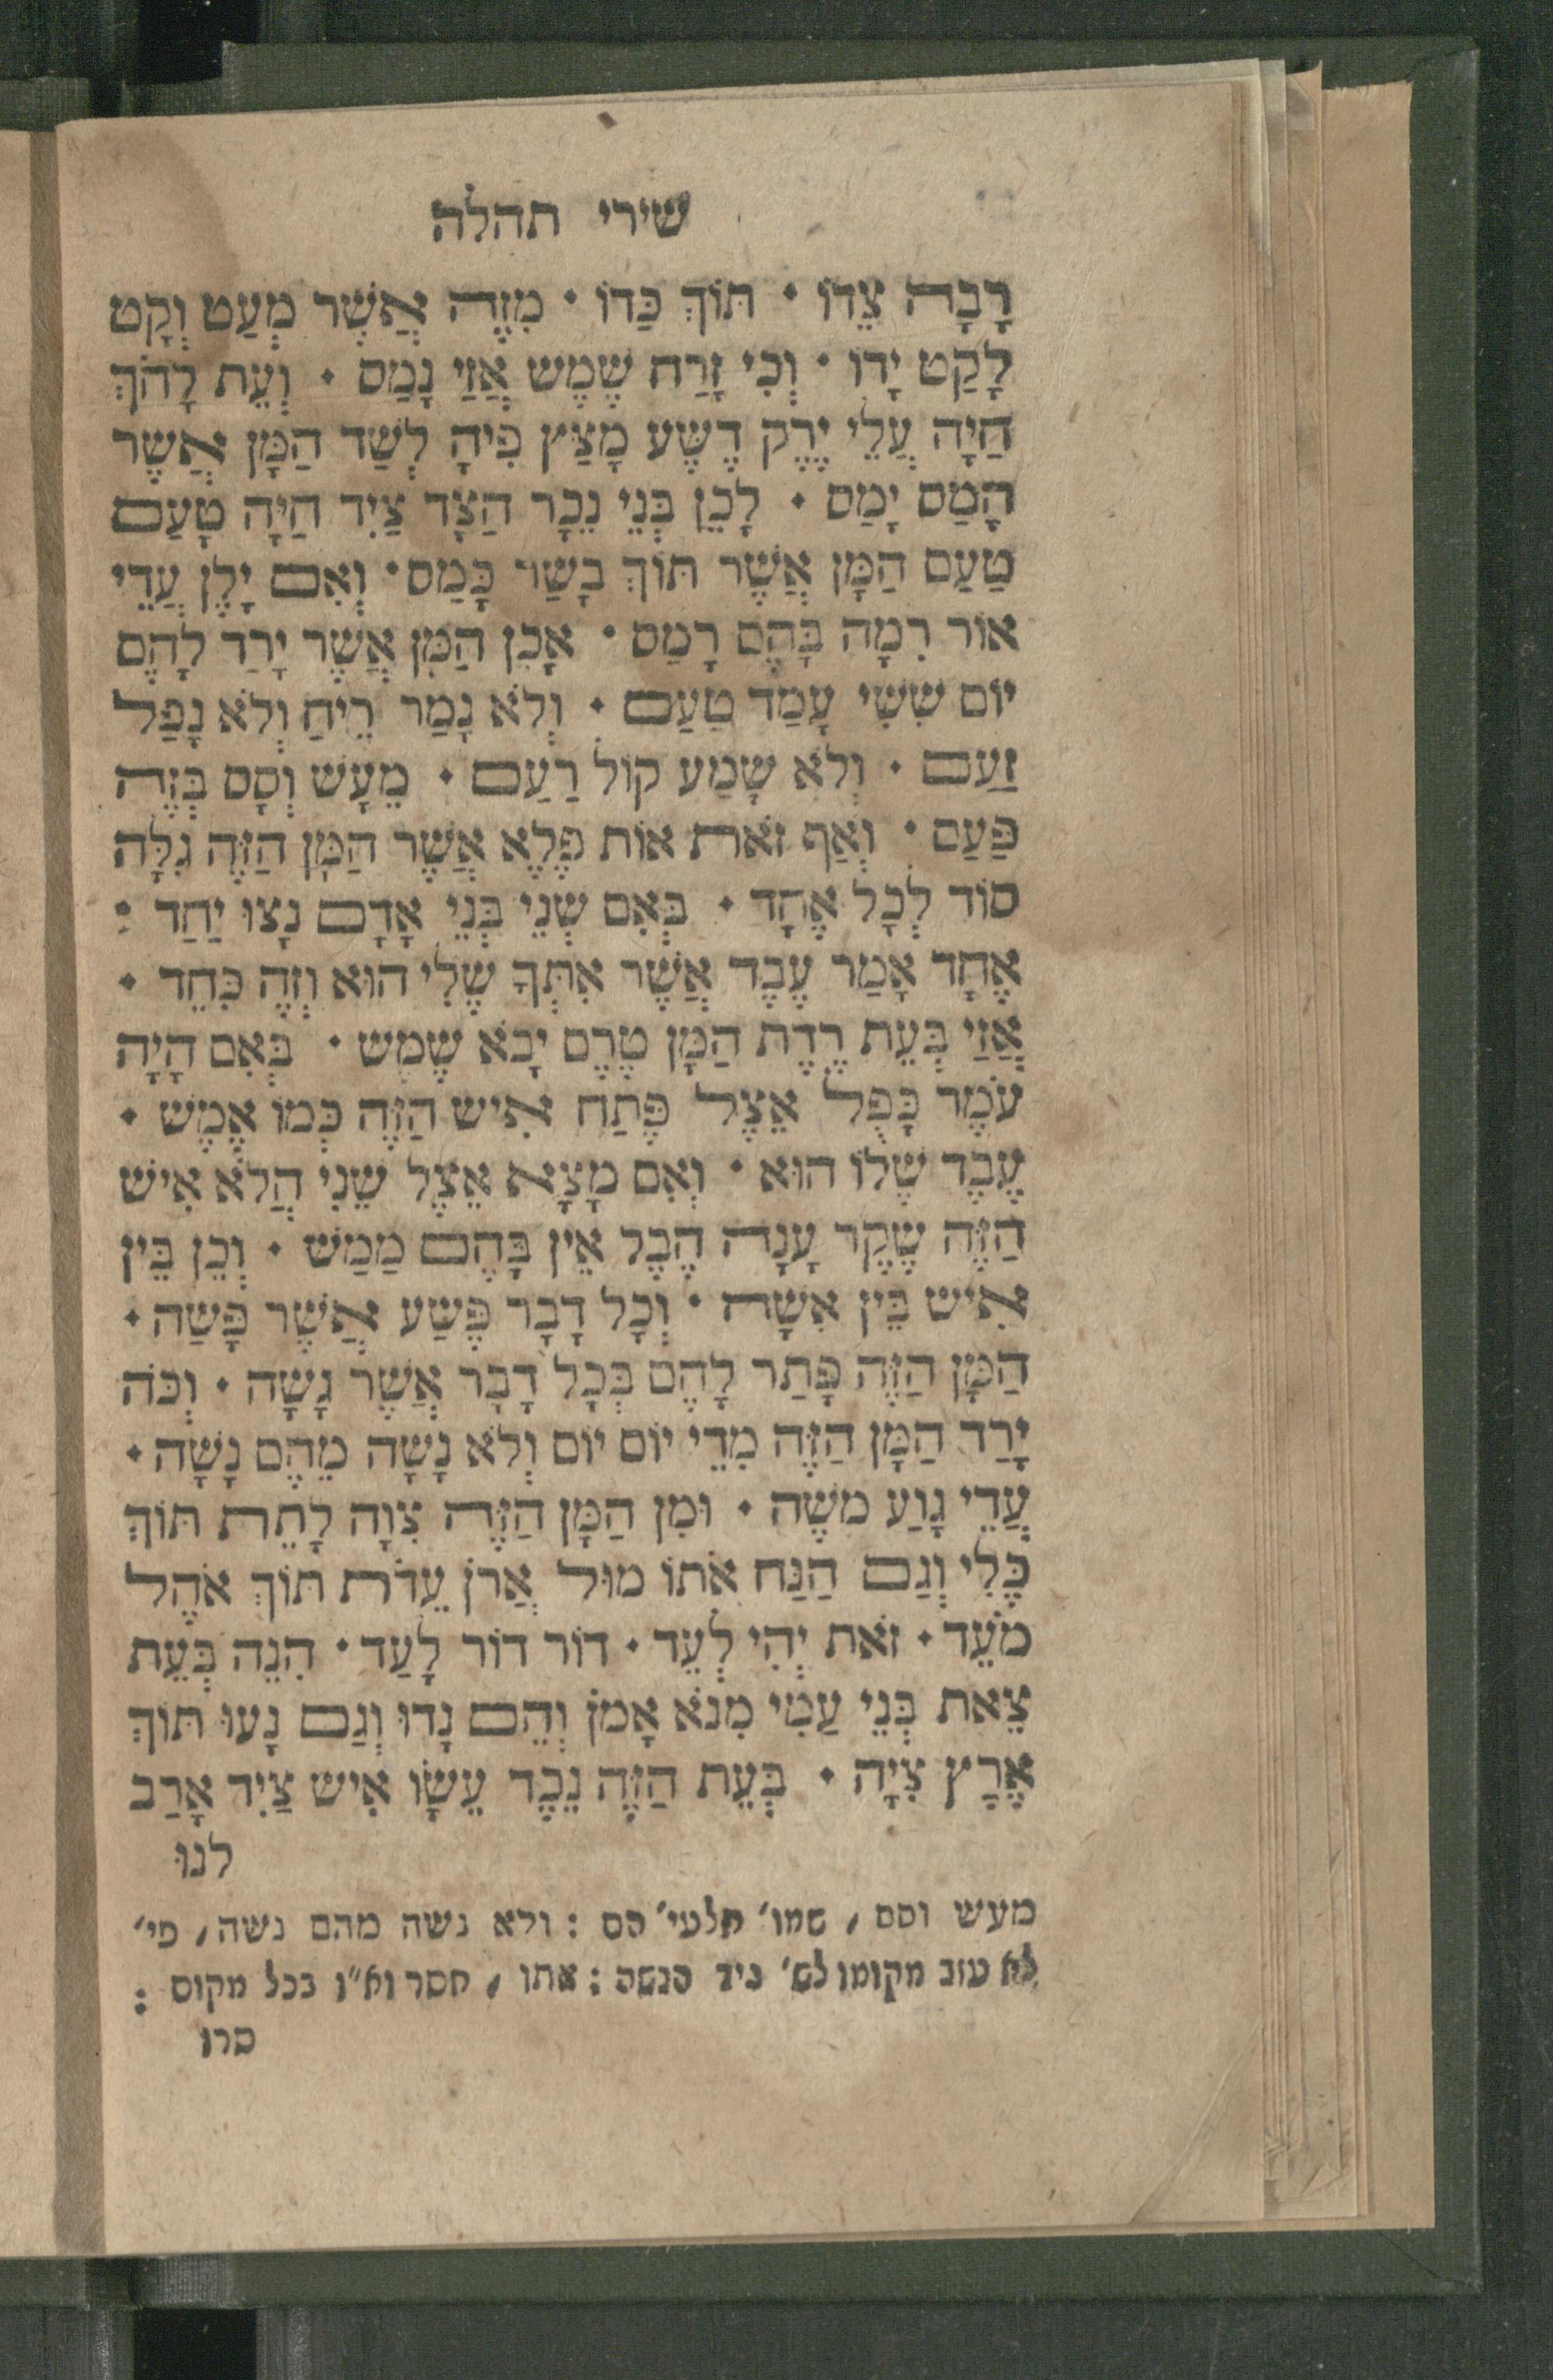 שירי תהלה
רָבָה צֵדוֹ • תּוֹךְ כַּדוֹ • מִזֶה אֲשֶׁר מְעַט וְקָט
לָקַט יָדוֹ • וְכִי זָרַח שֶׁמֶשׁ אֲזַי נָמַס • וְעֵת לָהֹךְ
חַיָה עֲלֵי יֶרֶק דֶשֶׁע מָצַץ פִיהָ לְשַׁד הַמָן אֲשֶׁר
הָמַס יָמַס • לָכֵן בְּנֵי נֵכָר הַצָד צַיִד חַיָה טָעַם
טַעַם הַמָן אֲשֶׁר תּוֹךְ בָשַׂר כָּמַס • וְאִם יָלֶן עֲדֵי
אוֹר רִמָה בָּהֶם רָמַס • אָכֵן הַמָן אֲשֶׁר יָרַד לָהֶם
יוֹם שִׁשִׁי עָמַד טַעַם • וְלֹא נָמַר רֵיחַ וְלֹא נָפַל
זַעַם • וְלֹא שָׁמַע קוֹל רַעַם • מֵעָשׁ וְסָס בְּזֶה
פַּעַם • וְאַף זֹאת אוֹת פֶּלֶא אֲשֶׁר הַמָן הַזֶּה גִלָּה
סוֹד לְכָל אֶחָד • בְּאִם שְׁנֵי בְּנֵי אָדָם נָצוּ יַחַד :
אֶחָד אָמַר עֶבֶד אֲשֶׁר אִתְּךָ שֶׁלִי הוּא וְזֶה כִּחֵד •
אֲזַי בְּעֵת רֶדֶת הַמָּן טֶרֶם יָבֹא שֶׁמֶשׁ • בְּאִם הָיָה
עֹמֶר כָּפֵל אֵצֶל פֶּתַח אִישׁ הַזֶּה כְּמוֹ אֶמֶשׁ •
עֶבֶד שֶׁלוֹ הוּא • וְאִם מָצָא אֵצֶל שֵׁנִי הֲלֹא אִישׁ
הַזֶּה שֶׁקֶר עָנָה הֶבֶל אֵין בָּהֶם מַמַשׁ • וְכֵן בֵּין
אִישׁ בֵּין אִשָׁה • וְכָל דָבָר פֶּשַׁע אֲשֶׁר פָּשַׂה •
הַמָּן הַזֶּה פָּתַר לָהֶם בְּכָל דָבָר אֲשֶׁר גָשָׁה • וְכֹּה
יָרַד הַמָּן הַזֶּה מִדֵי יוֹם יוֹם וְלֹא נָשָׁה מֵהֶם נָשָׁה •
עֲדֵי גָוַע מֹשֶׁה • וּמִן הַמָּן הַזֶּה צִוָּה לָתֵת תּוֹךְ
כֶּלִי וְגַם הַנַּח אֹתוֹ מוּל אֲרֹן עֵדֹת תּוֹךְ אֹהֶל
מֹעֵד • זֹאת יְהִי לְעֵד • דוֹר דוֹר לָעַד • הִנֵה בְּעֵת
צֵאת בְּנֵי עַמִּי מִנֹּא אָמֹן וְהֵם נָדוּ וְגַם נָעוּ תּוֹךְ
אֶרֶץ צִיָּה • בְּעֵת הַזֶּה נֶכֶד עֵשָׂו אִישׁ צַיִד אָרַב
לנוּ
מעש וסס , שמו׳ תלעי׳ הם : ולא נשה מהם נשה, פי׳
לא עזב מקומו לש׳ גיד הנשה : אתו , חסר וא״ו בכל מקום :
סרו